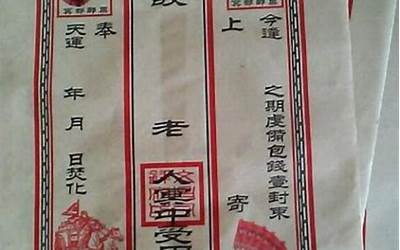 今逢 之期虔備包錢壹封束
上 寄
老 人冥中受
奉
天運 年 月 日焚化